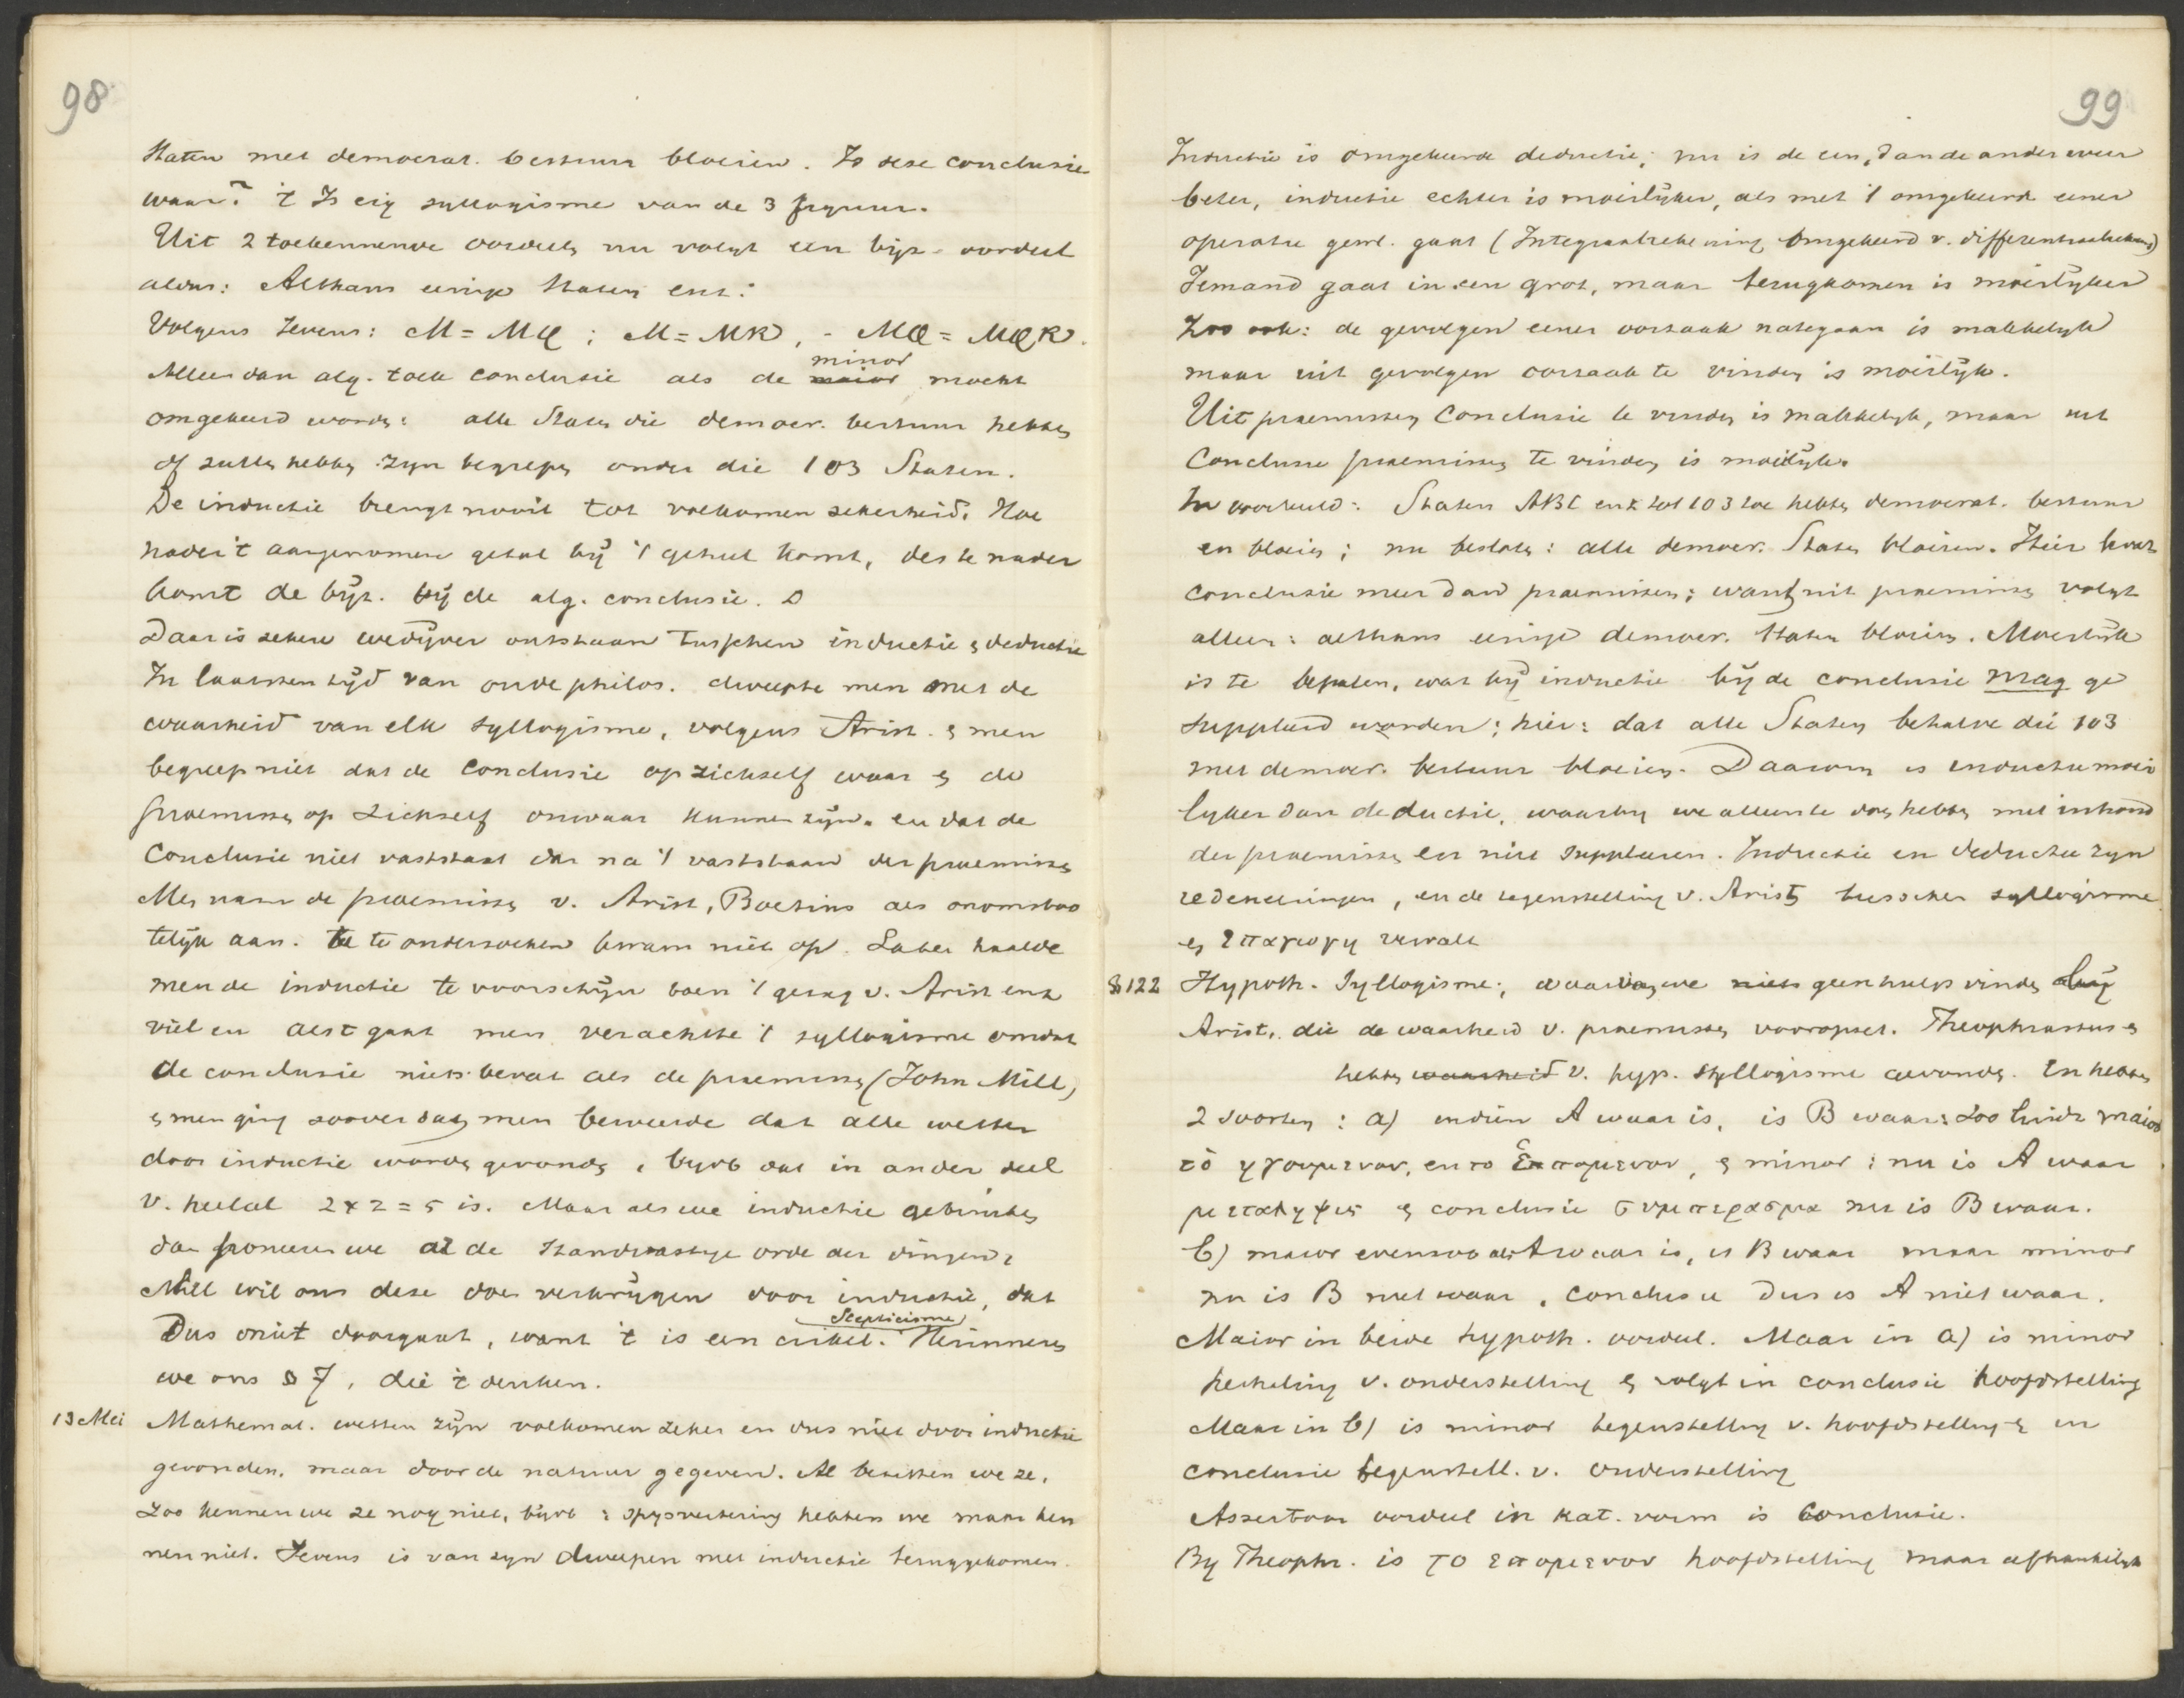 98
Staten met democrat. bestuur bloeien. Is deze conclusie
waar? 't Is eig syllogisme van de 3 figuur.
Uit 2 toekennende oordeelen nu volgt een bijz. oordeel
aldus: Althans eenige Staten enz.:
Volgens Jevons: M = MQ ; M = MK, - MQ = MQK.
Alleen dan alg. toek conclusie als de maior minor mocht
omgekeerd worden: alle Staten die democr. bestuur hebben
of zullen hebben zijn begrepen onder die 103 Staten.
De inductie brengt nooit tot volkomen zekerheid. Hoe
nader 't aangenomen getal bij 't geheel komt, des te nader
komt de bijz. bij de alg. conclusie.
Daar is zekere wedijver ontstaan tusschen inductie en deductie
In laatsten tijd van oude philos. dweepte men met de
waarheid van elk syllogisme, volgens Arist. en men
begreep niet dat de conclusie op zichzelf waar en de
praemissen op zichzelf onwaar kunnen zijn. en dat de
Conclusie niet vaststaat dan na 't vaststaan der praemissen
Men nam de praemissen v. Arist, Boetius als onomstoo
telijk aan. te onderzoeken kwam niet op. Later haalde
men de inductie te voorschijn toen 't gezag v. Arist enz
viel en als 't gaat men verachtte 't syllogisme omdat
de conclusie niets bevat als de praemissen (John Mill)
en men ging zoover dat men beweerde dat alle wetten
door inductie worden gevonden, bijvb dat in ander deel
v. heelal 2 x 2 = 5 is. Maar als we inductie gebruiken
dan poneeren we al de standvastige orde der dingen,
Mill wil ons deze doen verkrijgen door inductie, dat
Dus niet doorgaat, want 't is een cirkel. Scepticisme Herinneren
we ons § 7, die 't denken.
13 Mei Mathemat. wetten zijn volkomen zeker en dus niet door inductie
gevonden, maar door de natuur gegeven. Al bezitten we ze,
zoo kennen we ze nog niet, bijvb: spijsvertering hebben we maar ken
nen niet. Jevons is van zijn dweepen met inductie teruggekomen.
99
Inductie is omgekeerde deductie, nu is de een, dan de ander weer
beter, inductie echter is moeilijker, als met 't omgekeerde eener
operatie gewl. gaat (Integraalrekening omgekeerd v. differentiaalrekening)
Iemand gaat in een grot, maar terugkomen is moeilijker
Zoo ook: de gevolgen eener oorzaak nategaan is makkelijk
maar uit gevolgen oorzaak te vinden is moeilijk.
Uit praemissen Conclusie te vinden is makkelijk, maar uit
Conclusie praemissen te vinden is moeilijk.
In voorbeeld: Staten ABC enz tot 103 toe hebben democrat. bestuur
en bloeien; nu besluiten: alle democr. Staten bloeien. Hier bevat
conclusie meer dan praemissen; want uit praemissen volgt
alleen: althans eenige democr. Staten bloeien. Moeilijk
is te bepalen, wat bij inductie bij de conclusie mag ge
suppleerd worden; hier: dat alle Staten behalve die 103
met democr. bestuur bloeien. Daarom is inductie moei
lijker dan deductie, waarbij we alleen te doen hebben met inhoud
der praemissen en niet suppleeren. Inductie en deductie zijn
redeneeringen, en de tegenstelling v. Arist tusschen syllogisme
en επαγωγη vervalt
§ 122 Hypoth. Syllogisme; waarvan we niets geen hulp vinden bij
Arist. die de waarheid v. praemissen vooropzet. Theophrastus en
hebben waarheid v. hyp. syllogisme gevonden. En hebben
2 soorten: a) indien A waar is, is B waar: zoo luidt maior
τὸ ηγουμενον, en το επομενον, en minor: nu is A waar
μεταληψις en conclusie συμπερασμα nu is B waar.
b) maior evenzoo als A waar is, is B waar maar minor
nu is B niet waar, conclusie dus is A niet waar.
Maior in beide hypoth. oordeel. Maar in a) is minor
herhaling v. onderstelling en volgt in conclusie hoofdstelling
Maar in b) is minor tegenstelling v. hoofdstelling en in
conclusie tegenstell. v. onderstelling
Assertoor oordeel in kat. vorm is Conclusie.
By Theophr. is το επομενον hoofdstelling maar afhankelijk